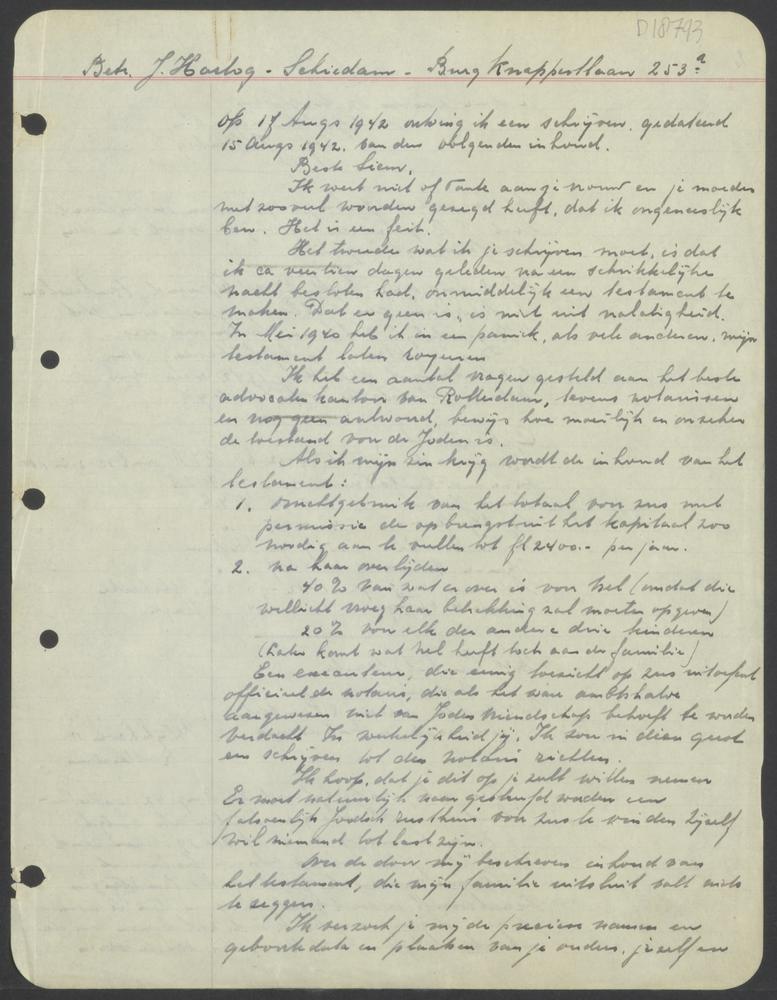 D18793
Betr. J. Hartog - Schiedam - Burg Knappertlaan 253a
Op 17 Augs 1942 ontving ik een schrijven, gedateerd
15 Augs 1942, van den volgenden inhoud.
Beste Siem,
Ik weet niet of Tante aan je vrouw en je moeder
met zooveel woorden gezegd heeft, dat ik ongeneeslijk
ben. Het is een feit.
Het tweede wat ik je schrijven moet, is dat
ik ca veertien dagen geleden na een schrikkelijke
nacht besloten had, onmiddelijk een testament te
maken. Dat er geen is, is niet uit nalatigheid.
In Mei 1940 heb ik in een paniek, als vele anderen, mijn
testament laten royeeren
Ik heb een aantal vragen gesteld aan het beste
advocaten kantoor van Rotterdam, tevens notarissen
en nog geen antwoord, bewijs hoe moeilijk en onzeker
de toestand voor de Joden is.
Als ik mijn zin krijg wordt de inhoud van het
testament:
1. vruchtgebruik van het totaal voor zus met
permissie de opbrengst uit het kapitaal zoo
noodig aan te vullen tot fl 2400.- per jaar.
2. na haar overlijden
40% van wat er over is voor Nel (omdat die
wellicht vroeg haar betrekking zal moeten opgeven)
20% voor elk der andere drie kinderen
(Later komt wat Nel heeft toch aan de familie)
Een executeur, die eenig toezicht op zus uitoefent
officieel de notaris, die als het ware ambtshalve
aangewezen niet van Joden vriendschap behoeft te worden
verdacht. In werkelijkheid jij. Ik zou in dien geest
een schrijven tot den notaris richten.
Ik hoop, dat je dit op je zult willen nemen
Er moet natuurlijk naar gestreefd worden een
fatsoenlijk Joodsch rusthuis voor zus te vinden Zijzelf
wil niemand tot last zijn.
Over de door mij beschreven inhoud van
het testament, die mijn familie uitsluit valt niets
te zeggen.
Ik verzoek je mij de precieze namen en
geboortedata en plaatsen van je ouders, jezelf en